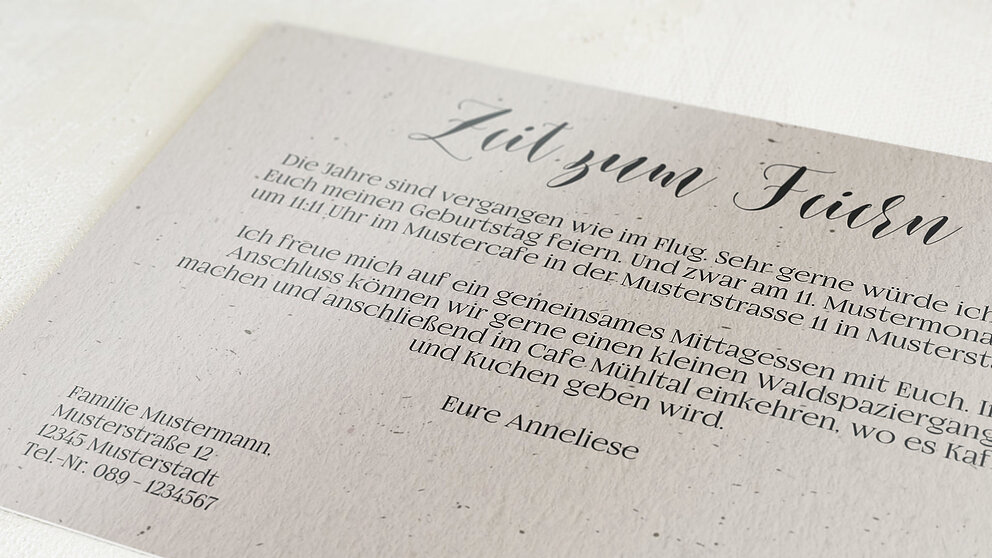 Zeit zum Feiern
Die Jahre sind vergangen wie im Flug. Sehr gerne würde ich
Euch meinen Geburtstag feiern. Und zwar am 11. Mustermona
um 11:11 Uhr im Mustercafe in der Musterstrasse 11 in Mustersta
Ich freue mich auf ein gemeinsames Mittagessen mit Euch. I
Anschluss können wir gerne einen kleinen Waldspaziergang
machen und anschließend im Cafe Mühltal einkehren, wo es Kaf
und Kuchen geben wird.
Eure Anneliese
Familie Mustermann
Musterstraße 12
12345 Musterstadt
Tel.-Nr. 089 - 1234567